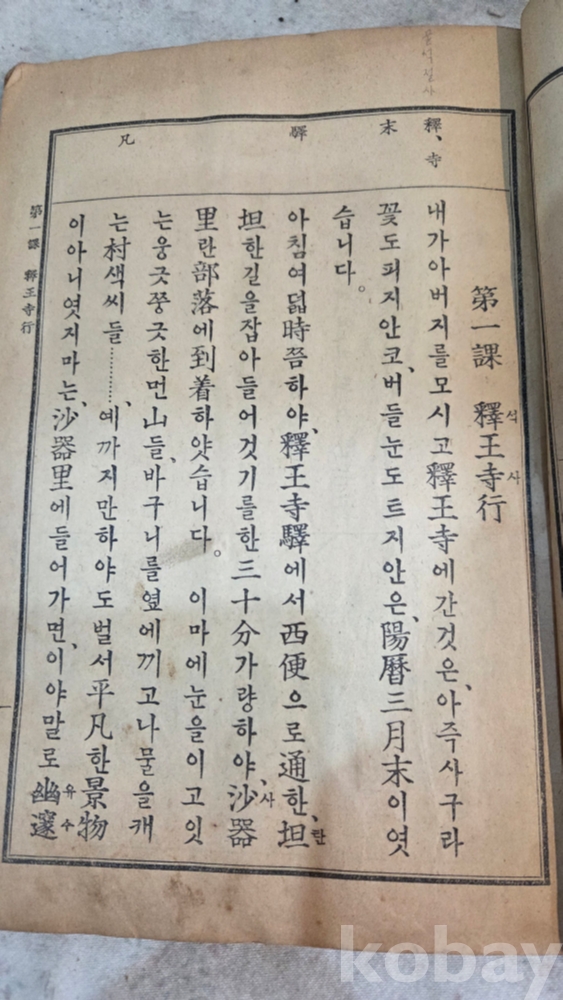 釋、寺
末
驛
凡
第一課 釋王寺行
석 사
내가아버지를모시고釋王寺에간것은、아즉사구라
꽃도피지안코、버들눈도트지안은、陽曆三月末이엿
습니다。
아침여덟時쯤하야、釋王寺驛에서西便으로通한、坦
란
坦한길을잡아들어것기를한三十分가량하야、沙器
사
里란部落에到着하얏습니다。 이마에눈을이고잇
는웅긋쭝긋한먼山들、바구니를옆에끼고나물을캐
는村색씨들…………、예까지만하야도벌서平凡한景物
이아니엿지마는、沙器里에들어가면、이야말로幽邃
유수
第一課 釋王寺行
kobay